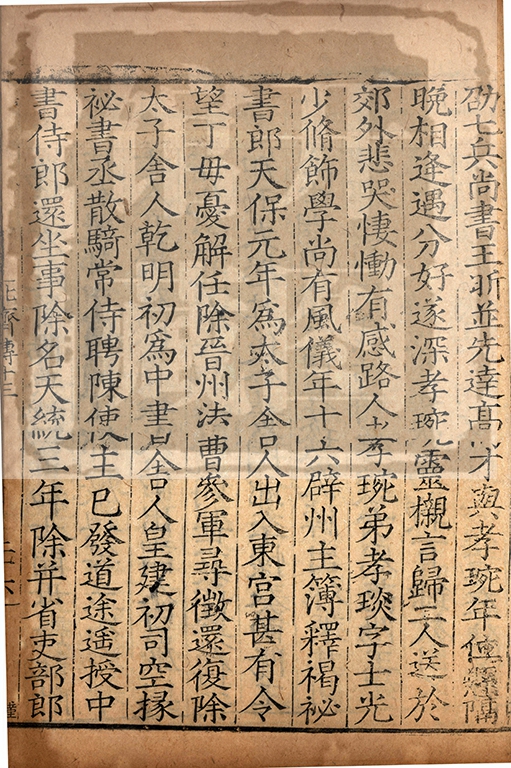 劭七兵尚書王昕並先達高才與孝琬年位懸隔
晚相逢遇分好遂深孝琬靈櫬言歸二人送於
郊外悲哭悽慟有感路人孝琬弟孝琰字士光
少脩飾學尚有風儀年十六辟州主簿釋褐祕
書郎天保元年為太子舍人出入東宮甚有令
望丁母憂解任除晉州法曹參軍尋徵還復除
太子舍人乾明初為中書舍人皇建初司空掾
祕書丞散騎常侍聘陳使主已發道途遥授中
書侍郎還坐事除名天統三年除并省吏部郎
北齊傳十三
二十六